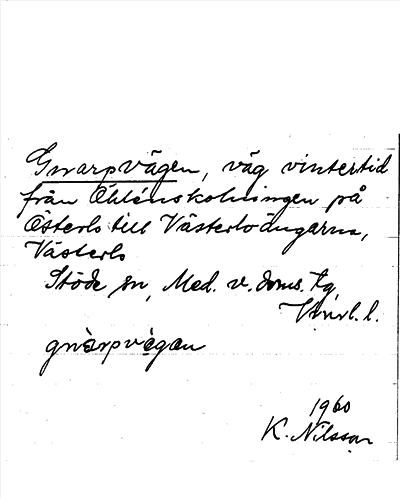 Gnarpvägen, väg vintertid
från Öhlénskolningen på
Österlo till Västerloängarna,
Västerlo
Stöde sn, Med. v. doms. tg
l.l.
gnàrpvégan
1960
K. Nilsson